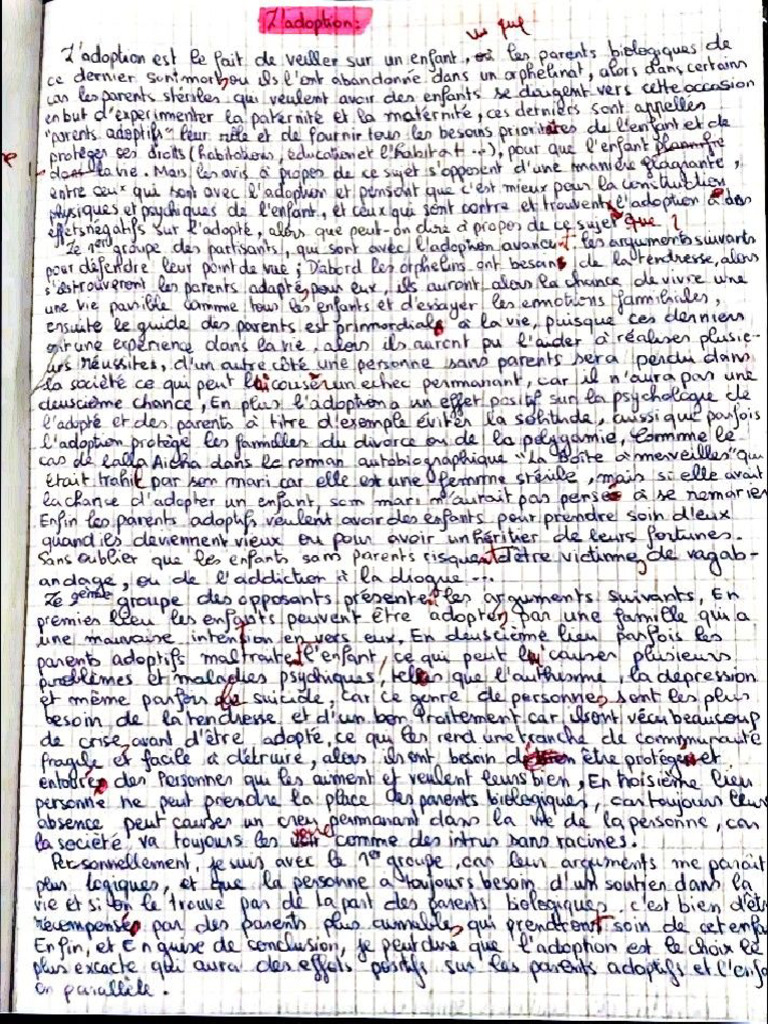 L'adoption:
vu que
L'adoption est le fait de veiller sur un enfant, où les parents biologiques de
ce dernier sont morts ou ils l'ont abandonné dans un orphelinat, alors dans certains
cas les parents stériles qui veulent avoir des enfants se dirigent vers cette occasion
en but d'experimenter la paternité et la maternité, ces derniers sont appelles
"parents adoptifs" leur rôle et de fournir tous les besoins prioritaires de l'enfant et de
protéger ses droits (habitations, éducation et l'habitat ...), pour que l'enfant
dans la vie. Mais les avis à propos de ce sujet s'opposent d'une manière flagrante,
entre ceux qui sont avec l'adoption et pensent que c'est mieux pour la construction
physiques et psychiques de l'enfant, et ceux qui sont contre et trouvent l'adoption a des
effets négatifs sur l'adopté, alors que peut-on dire à propos de ce sujet ?
Le 1er groupe des partisants, qui sont avec l'adoption avancent les arguments suivants
pour défendre leur point de vue ; D'abord les orphelins ont besoin de la tendresse, alors
s'ils trouveront les parents adaptés pour eux, ils auront alors la chance de vivre une
une vie paisible comme tous les enfants et d'essayer les emotions familiales,
ensuite le guide des parents est primordiale à la vie, puisque ces derniers
ont une expérience dans la vie, alors ils auront pu l'aider à réaliser plusie-
urs réussites, d'un autre côté une personne sans parents sera perdu dans
la société ce qui peut lui causer un echec permanant, car il n'aura pas une
deuxcième chance, En plus l'adoption a un effet positif sur la psychologie de
l'adopté et des parents à titre d'exemple éviter la solitude, aussi que parfois
l'adoption protège les familles du divorce ou de la polygamie, Comme le
cas de lalla Aicha dans le roman autobiographique "La Boîte à merveilles" qui
était trahit par son mari car elle est une femme stérile, mais si elle avait
la chance d'adopter un enfant, son mari n'aurait pas pensé à se remarier
Enfin les parents adoptifs veulent avoir des enfants pour prendre soin d'eux
quand ils deviennent vieux ou pour avoir un héritier de leurs fortunes.
Sans oublier que les enfants sans parents risquent d'être victimes de vagab-
andage, ou de l'addiction à la drogue ...
Le 2ème groupe des opposants présentent les arguments suivants, En
premier lieu les enfants peuvent être adopter par une famille qui a
une mauvaise intention en vers eux, En deuxcième lieu parfois les
parents adoptifs maltraitent l'enfant, ce qui peut lui causer plusieurs
problèmes et maladies psychiques, tels que l'authisme, la dépression
et même parfois suicide, car ce genre de personnes sont les plus
besoin de la tendresse et d'un bon traitement car ils ont vécu beaucoup
de crise avant d'être adopté, ce qui les rend une tranche de communauté
fragile et facile à détruire, alors ils ont besoin être protéger et
entourés des personnes qui les aiment et veulent leurs bien, En troisième lieu
personne ne peut prendre la place des parents biologiques, car toujours leur
absence peut causer un creu permanant dans la vie de la personne, car
la société va toujours les voir comme des intrus sans racines.
Personnellement, je suis avec le 1er groupe, car leur arguments me parait
plus logiques, et que la personne a toujours besoin d'un soutien dans la
vie et si on le trouve pas de la part des parents biologiques, c'est bien d'être
récompensé par des parents plus aimables qui prendront soin de cet enfant
Enfin, et En guise de conclusion, je peut dire que l'adoption est le choix le
plus excacte qui aura des effets positifs sur les parents adoptifs et l'enfant
en parallèle.